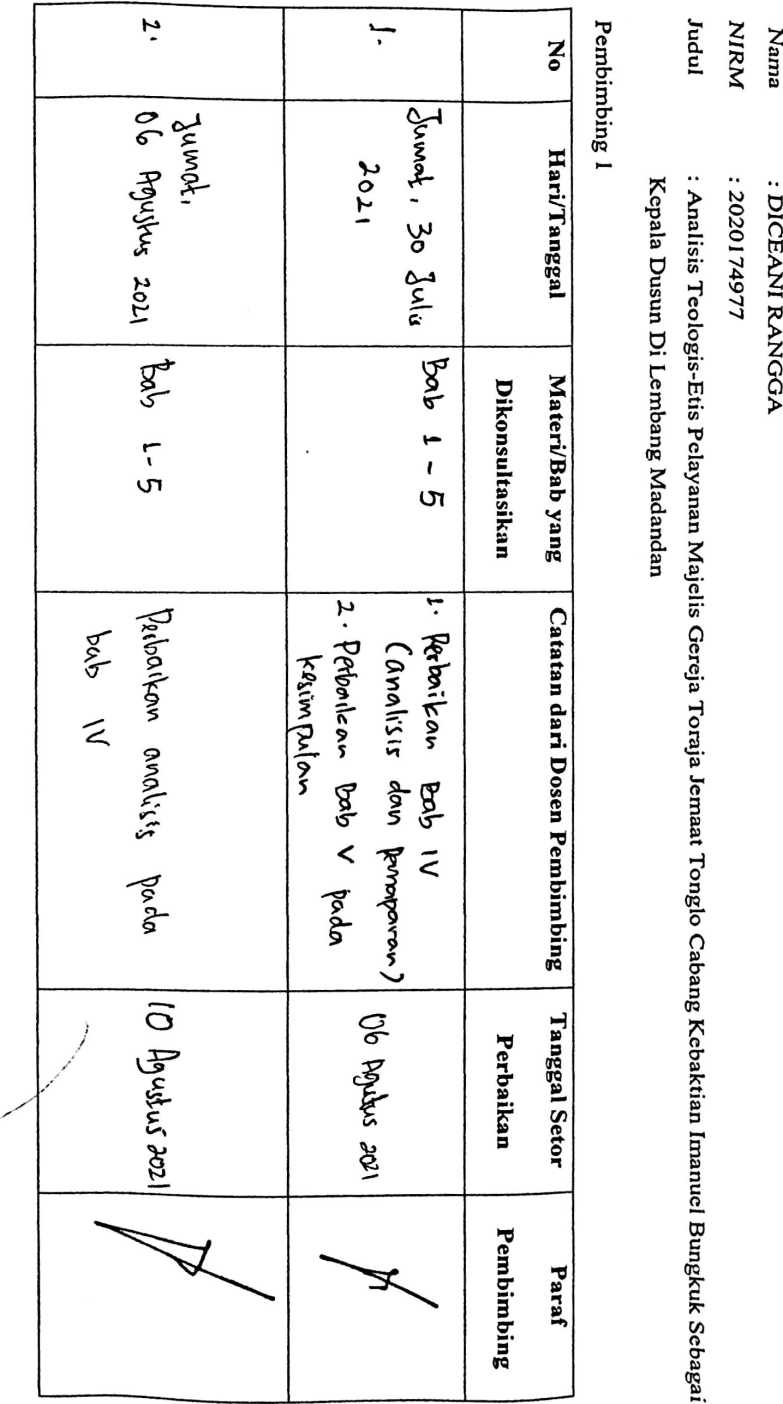 Nama : DICEANI RANGGA
NIRM : 2020174977
Judul : Analisis Teologis-Etis Pelayanan Majelis Gereja Toraja Jemaat Tonglo Cabang Kebaktian Imanuel Bungkuk Sebagai
Kepala Dusun Di Lembang Madandan
Pembimbing 1
No Hari/Tanggal Materi/Bab yang Dikonsultasikan Catatan dari Dosen Pembimbing Tanggal Setor Perbaikan Paraf Pembimbing
1. Jumat, 30 Juli
2021
Bab 1 - 5
1. Perbaikan Bab IV
(analisis dan pemaparan)
2. Perbaikan Bab V pada
kesimpulan
06 Agustus 2021
2. Jumat,
06 Agustus 2021
Bab 1-5
Perbaikan analisis pada
bab IV
10 Agustus 2021